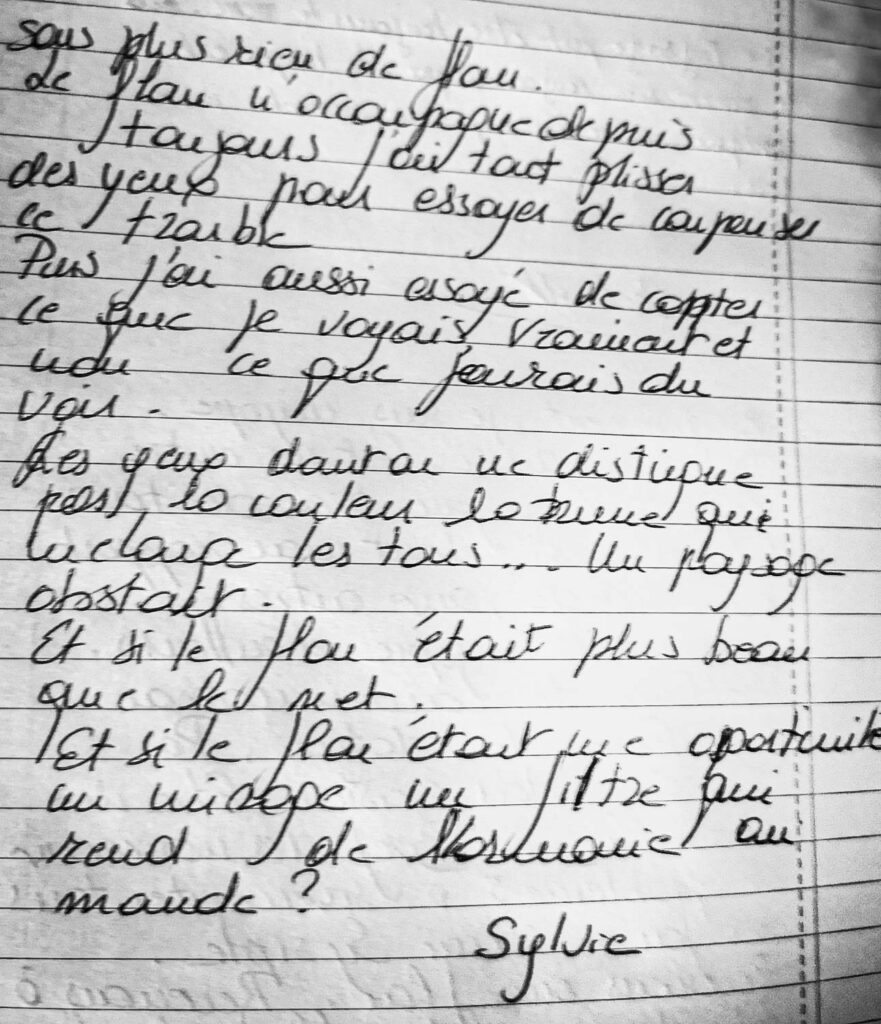 sans plus rien de flou.
Le flou m'accompagne depuis
toujours j'ai tant plisser
des yeux pour essayer de compenser
ce trouble
Puis j'ai aussi essayé de capter
ce que je voyais vraiment et
non ce que j'aurais du
voir.
Les yeux ne distingue
pas la couleur la brume qui
les tons... Un paysage
abstait.
Et si le flou était plus beau
que le net.
Et si le flou était une opportunité
un mirage un filtre qui
rend de l'harmonie au
monde ?
Sylvie